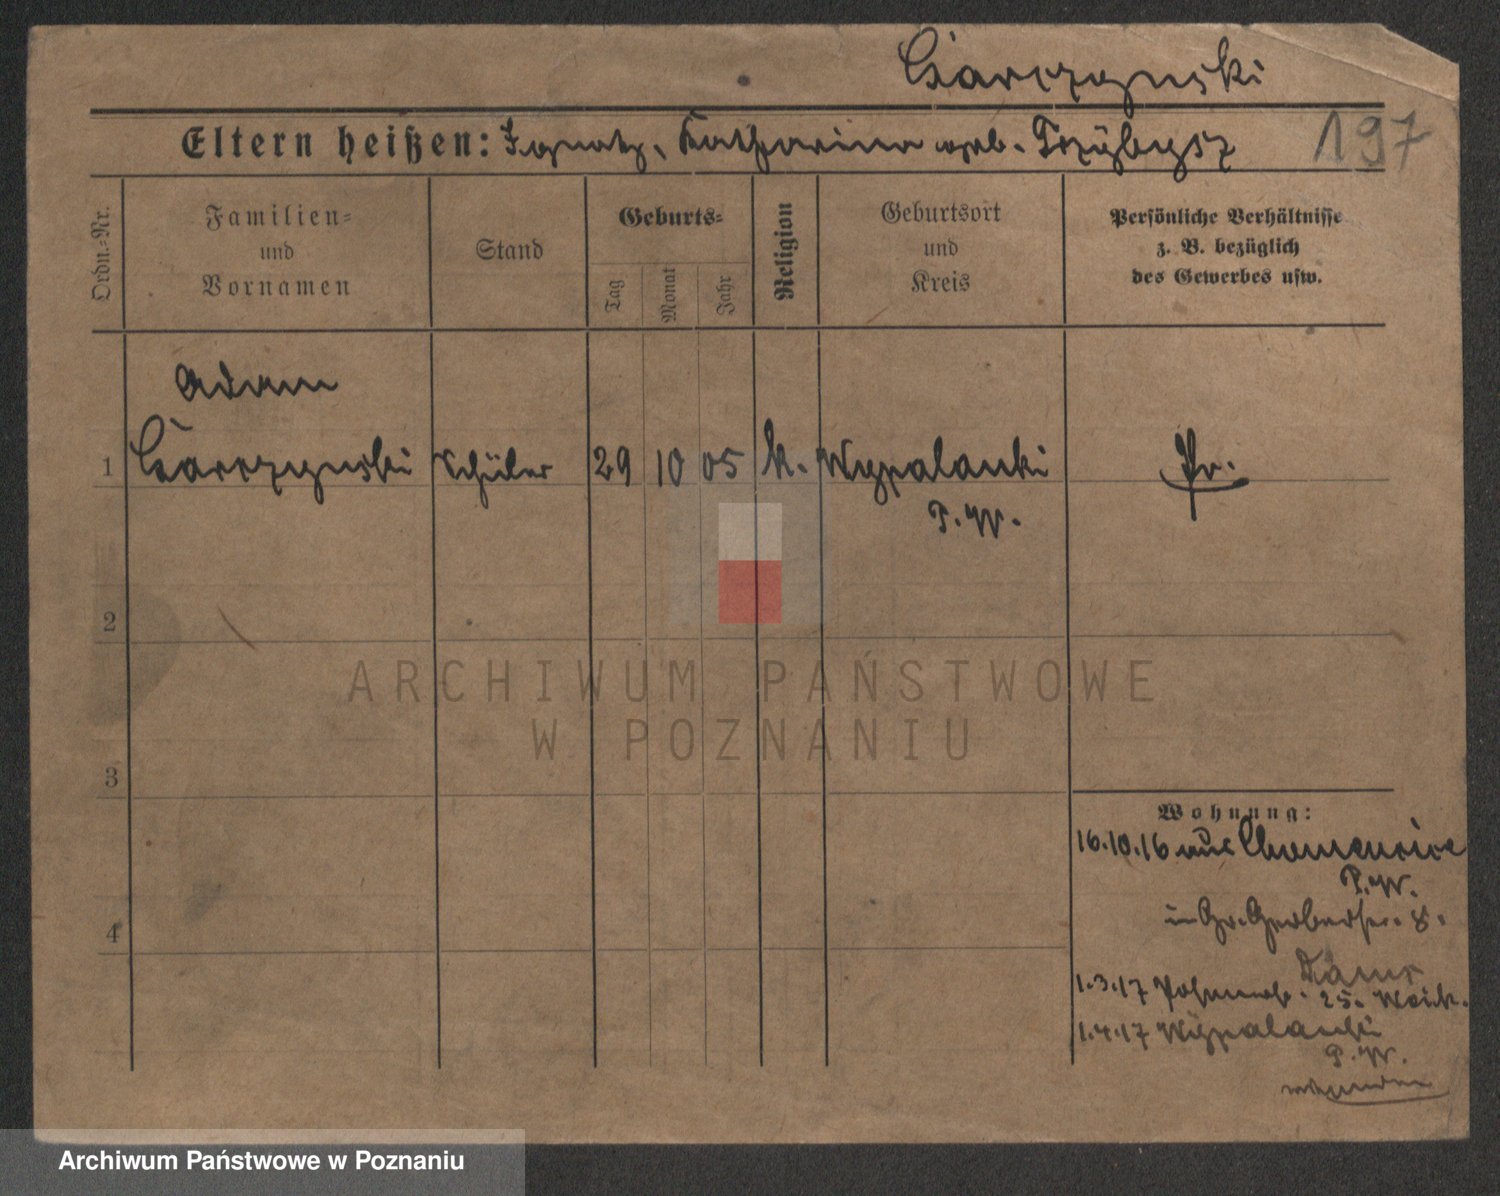 Czarczynski
197
Eltern heißen: Ignatz, Katharina geb. Przybysz
Ordn.-Nr.
Familien-
und
Vornamen
Stand
Geburts-
Tag
Monat
Jahr
Religion
Geburtsort
und
Kreis
Persönliche Verhältnisse
z. B. bezüglich
des Gewerbes usw.
Adam
1 Czarczynski Schüler 29 10 05 k. Wypalanki Pr.
P.W.
2
ARCHIWUM PAŃSTWOWE
W POZNANIU
3
Wohnung:
16.10.16 aus Chomencice
P.W.
in Gr. Gerberstr. 8.
4
1.3.17 25.
1.4.17 Wypalanki
P.W.
Archiwum Państwowe w Poznaniu